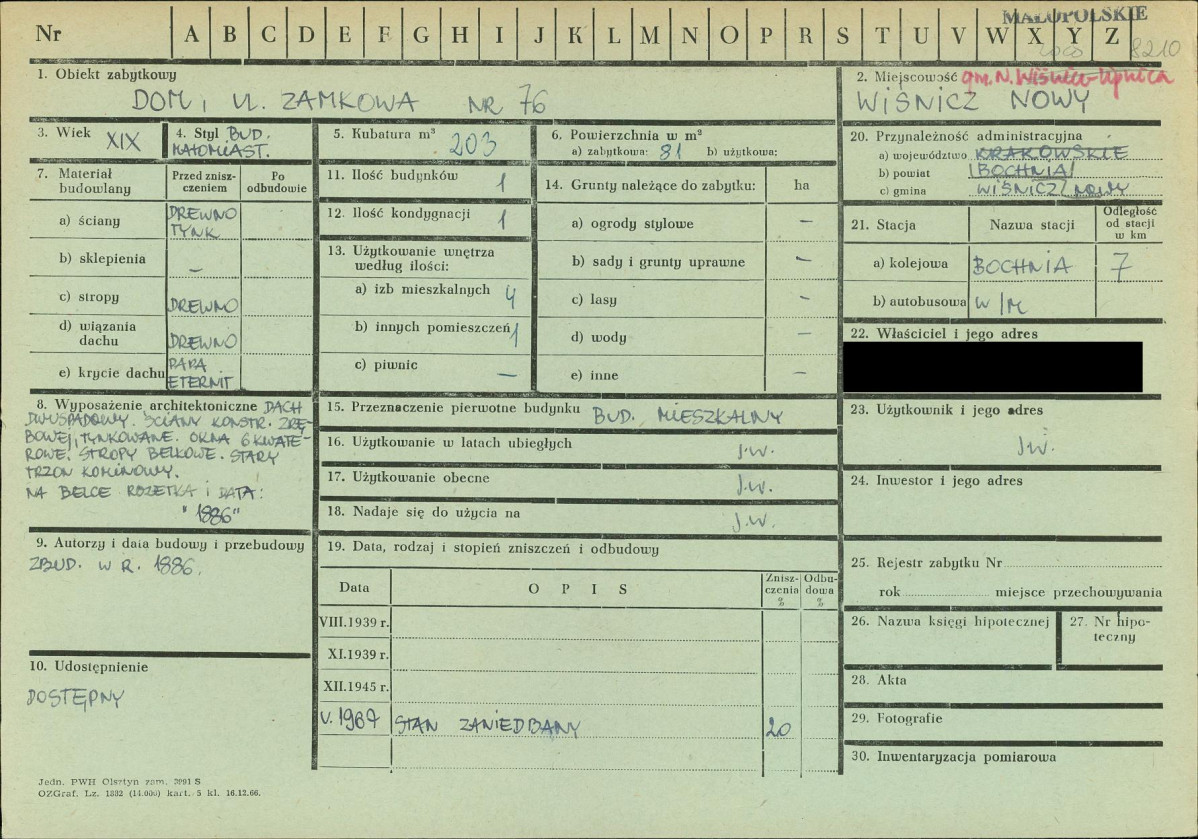 MAŁOPOLSKIE
Nr A B C D E F G H I J K L M N O P R S T U V W X Y Z
8210
1. Obiekt zabytkowy
DOM, UL. ZAMKOWA NR 76
2. Miejscowość gm. N. Wiśnicz-Lipnica
WIŚNICZ NOWY
3. Wiek XIX
4. Styl BUD.
MAŁOMIAST.
5. Kubatura m³ 203
6. Powierzchnia w m²
a) zabytkowa: 81 b) użytkowa:
7. Materiał budowlany
Przed zniszczeniem
Po odbudowie
a) ściany DREWNO
TYNK
b) sklepienia —
c) stropy DREWNO
d) wiązania dachu DREWNO
e) krycie dachu PAPA
ETERNIT
8. Wyposażenie architektoniczne DACH
DWUSPADOWY. ŚCIANY KONSTR. ZRĘ-
BOWEJ, TYNKOWANE. OKNA 6 KWATE-
ROWE. STROPY BELKOWE. STARY
TRZON KOMINOWY.
NA BELCE ROZETKA I DATA:
"1886"
9. Autorzy i data budowy i przebudowy
ZBUD. W R. 1886.
10. Udostępnienie
DOSTĘPNY
11. Ilość budynków 1
12. Ilość kondygnacji 1
13. Użytkowanie wnętrza
według ilości:
a) izb mieszkalnych 4
b) innych pomieszczeń 1
c) piwnic —
14. Grunty należące do zabytku: ha
a) ogrody stylowe —
b) sady i grunty uprawne —
c) lasy —
d) wody —
e) inne —
15. Przeznaczenie pierwotne budynku BUD. MIESZKALNY
16. Użytkowanie w latach ubiegłych J.W.
17. Użytkowanie obecne J.W.
18. Nadaje się do użycia na J.W.
19. Data, rodzaj i stopień zniszczeń i odbudowy
Data OPIS Zniszczenia % Odbudowa %
VIII.1939 r.
XI.1939 r.
XII.1945 r.
V. 1967 STAN ZANIEDBANY 20
20. Przynależność administracyjna
a) województwo KRAKOWSKIE
b) powiat BOCHNIA
c) gmina WIŚNICZ NOWY
21. Stacja Nazwa stacji Odległość od stacji w km
a) kolejowa BOCHNIA 7
b) autobusowa W/M
22. Właściciel i jego adres
23. Użytkownik i jego adres
J.W.
24. Inwestor i jego adres
25. Rejestr zabytku Nr
rok miejsce przechowywania
26. Nazwa księgi hipotecznej
27. Nr hipo-
teczny
28. Akta
29. Fotografie
30. Inwentaryzacja pomiarowa
Jedn. PWH Olsztyn zam. 3991 S
OZGraf. Lz. 1832 (14.000) kart. 5 kl. 16.12.66.